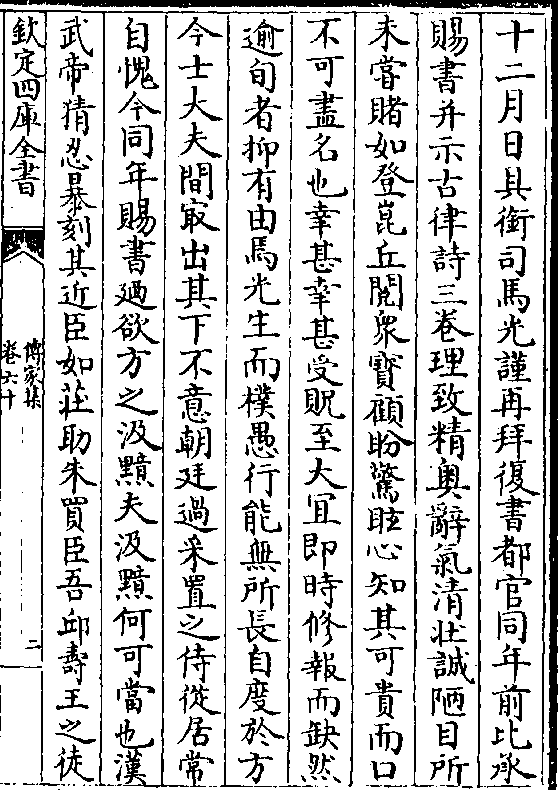 十二月日具銜司馬光謹再拜復書都官同年前比承
賜書并示古律詩三卷理致精奧辭氣清壯誠陋目所
未嘗賭如登崑丘閱衆寳顧盼驚眩心知其可貴而口
不可盡名也幸甚幸甚受貺至大宜即時修報而缺然
逾旬者抑有由焉光生而樸愚行能無所長自度於方
今士大夫間㝡出其下不意朝廷過采置之侍從居常
自愧今同年賜書廼欲方之汲黯夫汲黯何可當也漢
武帝猜忍暴刻其近臣如莊助朱買臣吾邱壽王之徒
欽定四庫全書
傳家集
卷六十
二